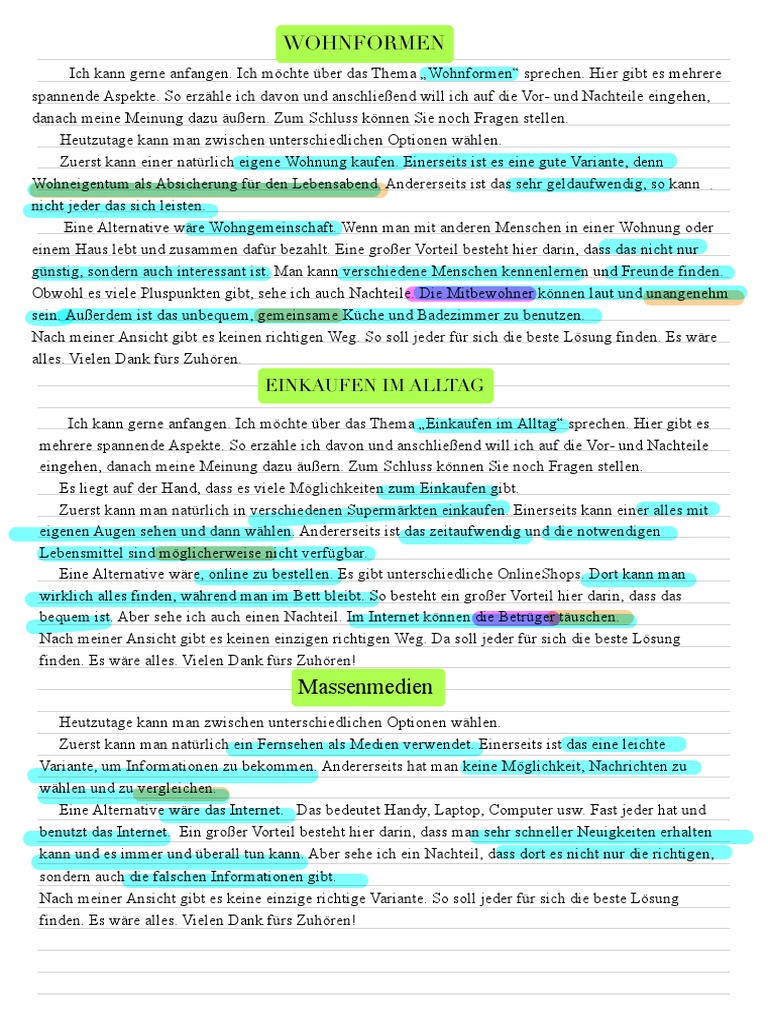 WOHNFORMEN
Ich kann gerne anfangen. Ich möchte über das Thema „Wohnformen“ sprechen. Hier gibt es mehrere
spannende Aspekte. So erzähle ich davon und anschließend will ich auf die Vor- und Nachteile eingehen,
danach meine Meinung dazu äußern. Zum Schluss können Sie noch Fragen stellen.
Heutzutage kann man zwischen unterschiedlichen Optionen wählen.
Zuerst kann einer natürlich eigene Wohnung kaufen. Einerseits ist es eine gute Variante, denn
Wohneigentum als Absicherung für den Lebensabend. Andererseits ist das sehr geldaufwendig, so kann
nicht jeder das sich leisten.
Eine Alternative wäre Wohngemeinschaft. Wenn man mit anderen Menschen in einer Wohnung oder
einem Haus lebt und zusammen dafür bezahlt. Eine großer Vorteil besteht hier darin, dass das nicht nur
günstig, sondern auch interessant ist. Man kann verschiedene Menschen kennenlernen und Freunde finden.
Obwohl es viele Pluspunkten gibt, sehe ich auch Nachteile. Die Mitbewohner können laut und unangenehm
sein. Außerdem ist das unbequem, gemeinsame Küche und Badezimmer zu benutzen.
Nach meiner Ansicht gibt es keinen richtigen Weg. So soll jeder für sich die beste Lösung finden. Es wäre
alles. Vielen Dank fürs Zuhören.
EINKAUFEN IM ALLTAG
Ich kann gerne anfangen. Ich möchte über das Thema „Einkaufen im Alltag“ sprechen. Hier gibt es
mehrere spannende Aspekte. So erzähle ich davon und anschließend will ich auf die Vor- und Nachteile
eingehen, danach meine Meinung dazu äußern. Zum Schluss können Sie noch Fragen stellen.
Es liegt auf der Hand, dass es viele Möglichkeiten zum Einkaufen gibt.
Zuerst kann man natürlich in verschiedenen Supermärkten einkaufen. Einerseits kann einer alles mit
eigenen Augen sehen und dann wählen. Andererseits ist das zeitaufwendig und die notwendigen
Lebensmittel sind möglicherweise nicht verfügbar.
Eine Alternative wäre, online zu bestellen. Es gibt unterschiedliche OnlineShops. Dort kann man
wirklich alles finden, während man im Bett bleibt. So besteht ein großer Vorteil hier darin, dass das
bequem ist. Aber sehe ich auch einen Nachteil. Im Internet können die Betrüger täuschen.
Nach meiner Ansicht gibt es keinen einzigen richtigen Weg. Da soll jeder für sich die beste Lösung
finden. Es wäre alles. Vielen Dank fürs Zuhören!
Massenmedien
Heutzutage kann man zwischen unterschiedlichen Optionen wählen.
Zuerst kann man natürlich ein Fernsehen als Medien verwendet. Einerseits ist das eine leichte
Variante, um Informationen zu bekommen. Andererseits hat man keine Möglichkeit, Nachrichten zu
wählen und zu vergleichen.
Eine Alternative wäre das Internet. Das bedeutet Handy, Laptop, Computer usw. Fast jeder hat und
benutzt das Internet. Ein großer Vorteil besteht hier darin, dass man sehr schneller Neuigkeiten erhalten
kann und es immer und überall tun kann. Aber sehe ich ein Nachteil, dass dort es nicht nur die richtigen,
sondern auch die falschen Informationen gibt.
Nach meiner Ansicht gibt es keine einzige richtige Variante. So soll jeder für sich die beste Lösung
finden. Es wäre alles. Vielen Dank fürs Zuhören!